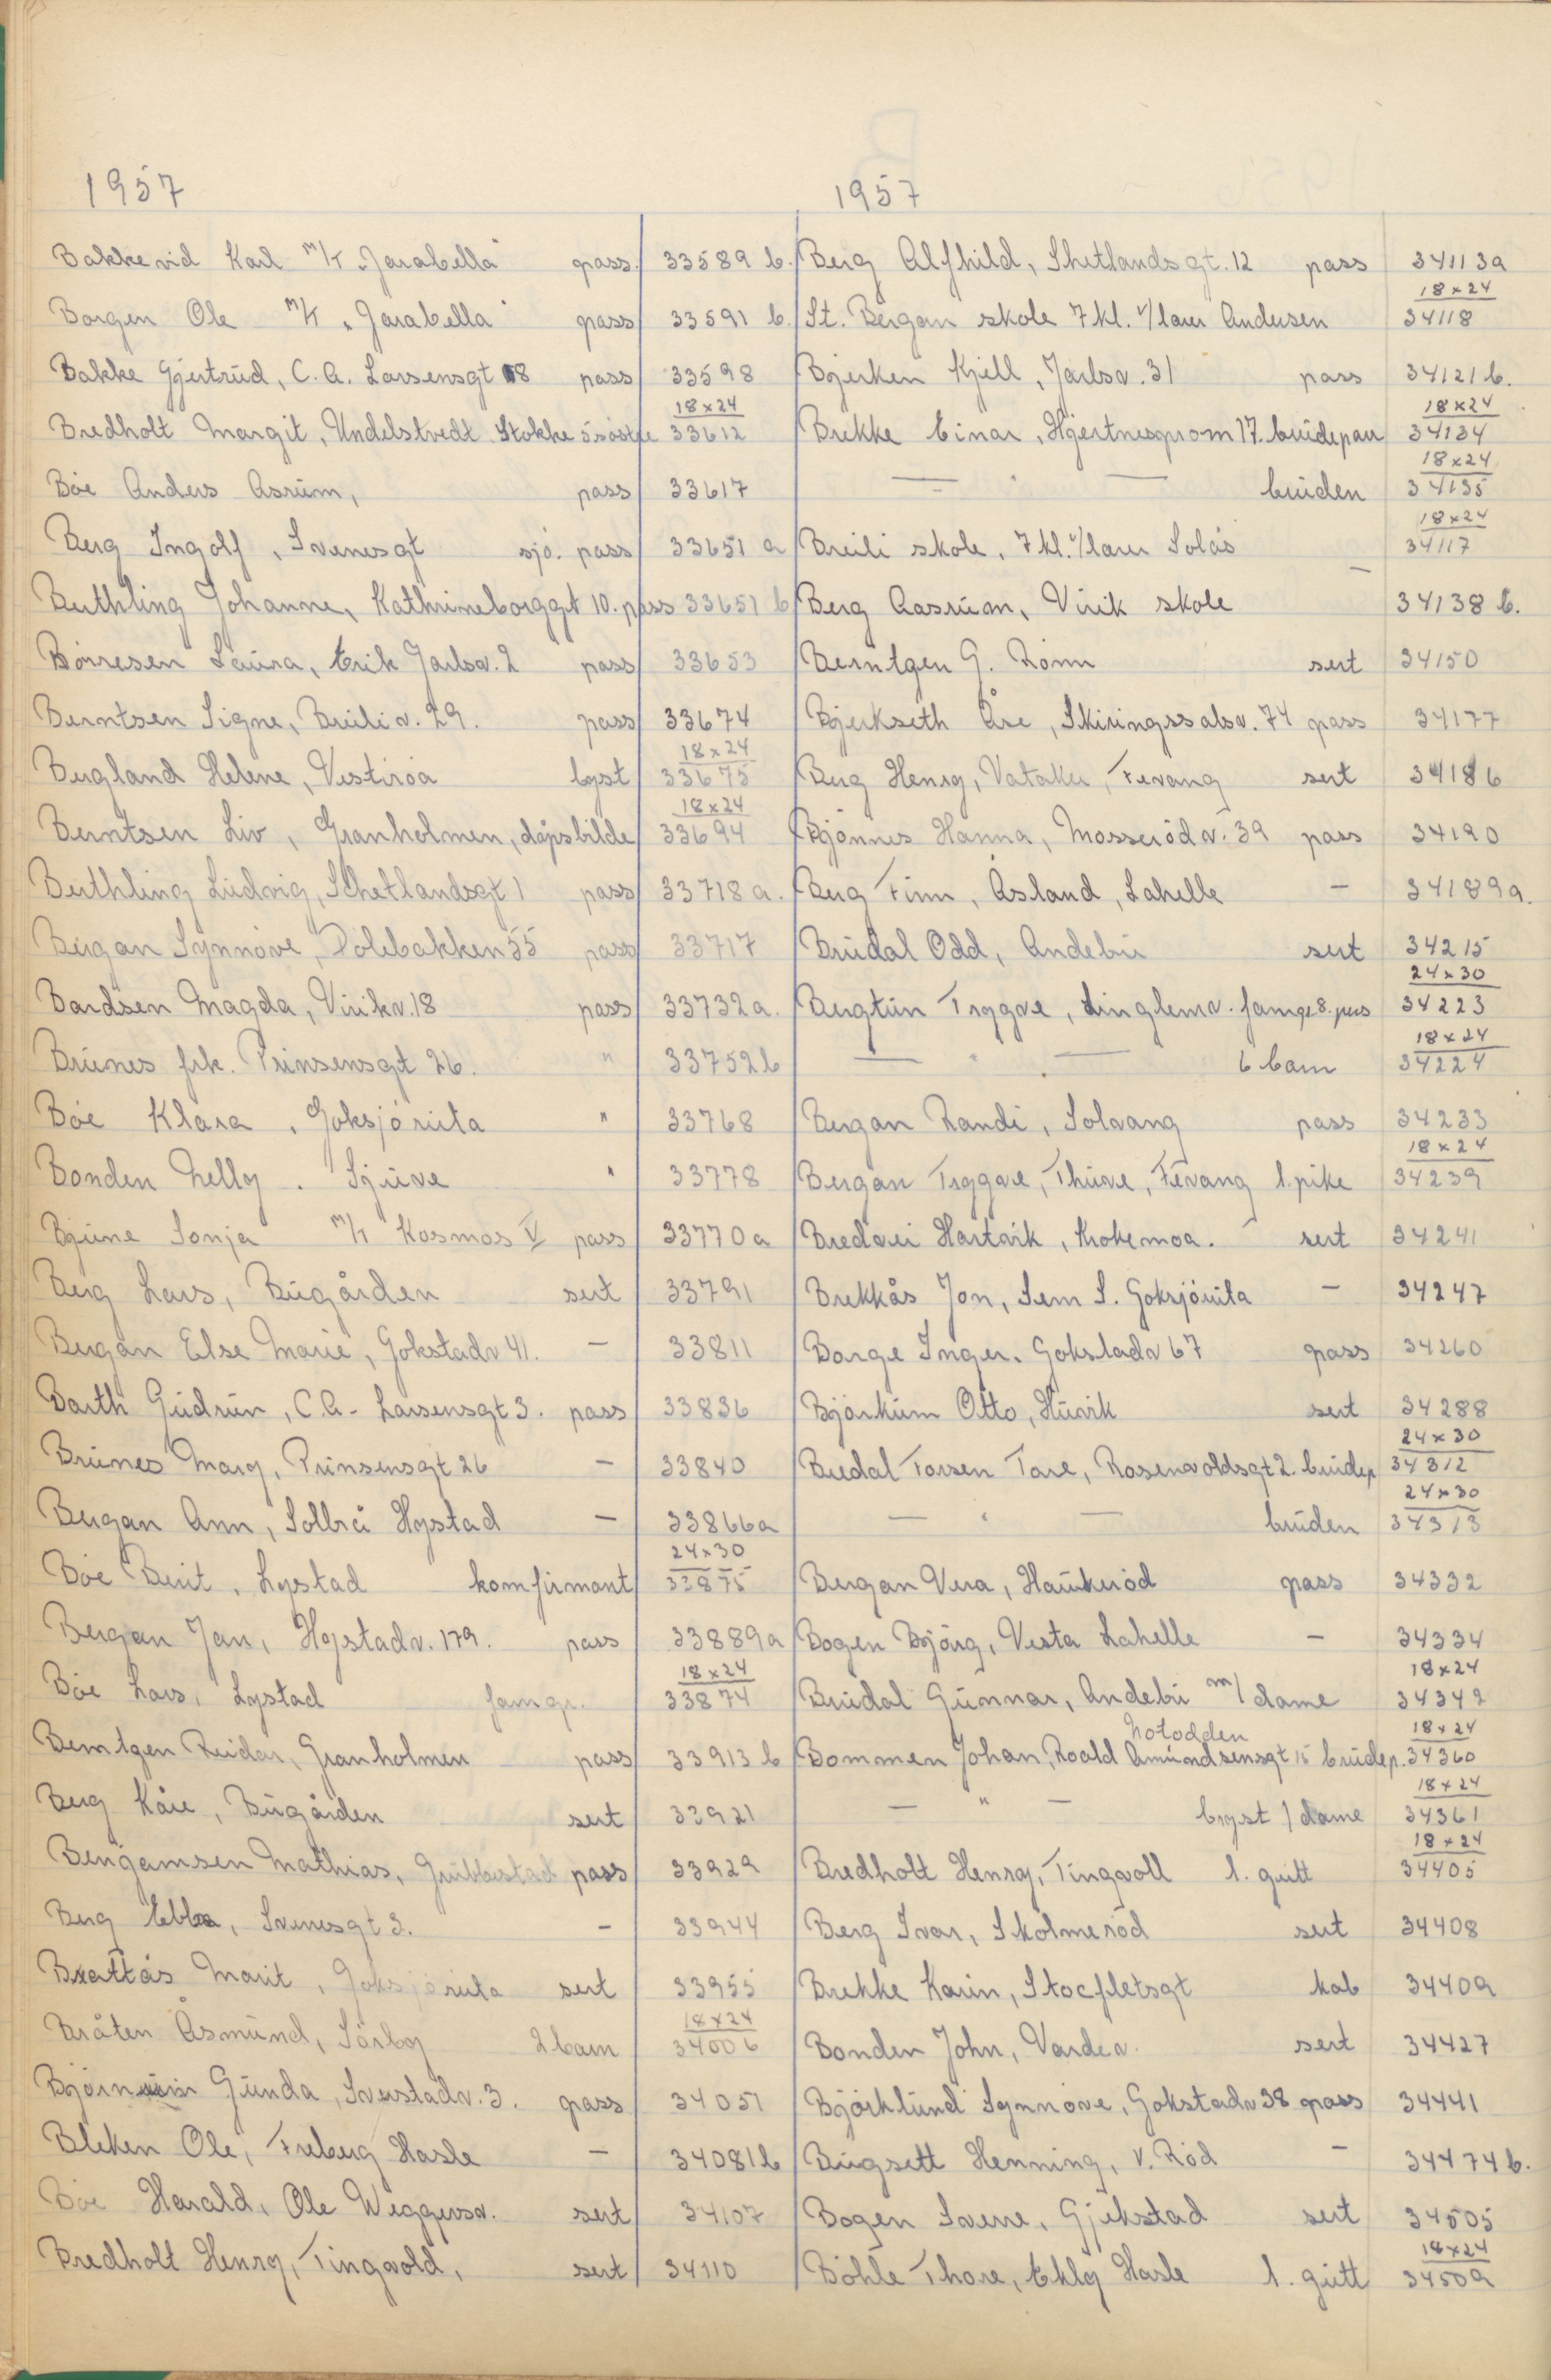 1957
Bakkevid Karl M/T "Jarabella" pass. 33589 b.
Borgen Ole M/T "Jarabella" pass 33591 b.
Bakke Gjertrud, C. A. Larsensgt 8 pass 33598
18x24
Bredholt Margit, Undelstvedt Stokke 5 søstre 33612
Böe Anders Asrum, pass 33617
Berg Ingolf, Svenesgt sjø. pass 33651 a
Berthling Johanne, Kathrineborggt 10. pass 33651 b
Börresen Laura, Erik Jarlsv. 2 pass 33653
Berntsen Signe, Breiliv. 29. pass 33674
18x24
Bergland Helene, Vestiröa byst 33675
18x24
Berntsen Liv, Granholmen, dåpsbilde 33694
Berthling Ludvig, Schetlandsgt 1 pass 33718 a.
Bergan Synnöve, Dölebakken 55 pass 33717
Bardsen Magda, Virikv. 18 pass 33732a.
Brunes frk. Prinsensgt 26. " 33752b
Böe Klara, Goksjöruta " 33768
Bonden Nelly. Sjuve " 33778
Bjune Sonja M/T Kosmos V pass 33770 a
Berg Lars, Bugården sert 33791
Bergan Else Marie, Gokstadv 41. — 33811
Barth Gudrun, C.A. Larsensgt 3. pass 33836
Brunes Marg, Prinsensgt 26 — 33840
Bergan Ann, Solbrå Hystad — 33866a
24x30
Böe Berit, Lystad komfirmant 33875
Bergan Jan, Hystadv. 179. pass 33889a
18x24
Böe Lars, Lystad famgr. 33874
Berntgen Reidar, Granholmen pass 33913 b
Berg Kåre, Bugården sert 33921
Bengamsen Mathias, pass 33929
Berg Ebba, Svenesgt 3. — 33944
Brattås Marit, Goksjöruta sert 33955
18x24
Bråten Åsmund, Sörby 2 barn 34006
Gunda, 3. pass 34051
Bleken Ole, Freberg Hasle — 34081b
Böe Harald, Ole Weggersv. sert 34107
Bredholt Henry, Tingvold, sert 34110
1957
Berg Alfhild, Shetlandsgt. 12 pass 34113a
18x24
St. Bergan skole 7 kl. v/lærer Andersen 34118
Bjerken Kjell, Jarlsv. 31 pass 34121 b.
18x24
Brekke Einar, Hjertnesprom 17. brudepar 34134
18x24
— " — bruden 34135
18x24
Breili skole, 7 kl. v/lærer Solås 34117
Berg Aasrum, Virik skole — 34138 b.
Berntgen G. Rönn sert 34150
Bjerkseth Åse, Skiringssalsv. 74 pass 34177
Berg Henry, Vataker, Fevang sert 34186
Bjönnes Hanna, Mosserödv. 39 pass 34190
Berg Finn, Åsland, Lahelle — 34189a.
Brudal Odd, Andebu sert 34215
24x30
Bergtun Tryggve, Linglemv. famgr 8. pers 34223
18x24
— " — 6 barn 34224
Bergan Randi, Solvang pass 34233
18x24
Bergan Tryggve, Thurve, Fevang 1. pike 34239
Bredvei Hartvik, Krokemoa. sert 34241
Brekkås Jon, Sem S. Goksjöruta — 34247
Borge Inger. Gokstadv 67 pass 34260
Bjørkum Otto, Husvik sert 34288
24x30
Bredal Torsen Tore, Rosenvoldsgt 2. brudep 34312
24x30
— " — bruden 34313
Bergan Vera, Haukeröd pass 34332
Bogen Bjørg, Vesta Lahelle — 34334
18x24
Brudal Gunnar, Andebu m/dame 34342
Notodden 18x24
Bommen Johan, Roald Amundsensgt 15 brudep. 34360
18x24
— " — bryst / dame 34361
18x24
Bredholt Henry, Tingvoll 1. gutt 34405
Berg Ivar, Skolmeröd sert 34408
Brekke Karin, Stocfletsgt kab 34409
Bonden John, Vardev. sert 34427
Björklund Synnöve, Gokstadv 38 pass 34441
Bugsett Henning, V. Röd — 34474 b.
Bogen Sverre, Gjekstad sert 34505
18x24
Böhle Thore, Ekly Hasle 1. gutt 34509